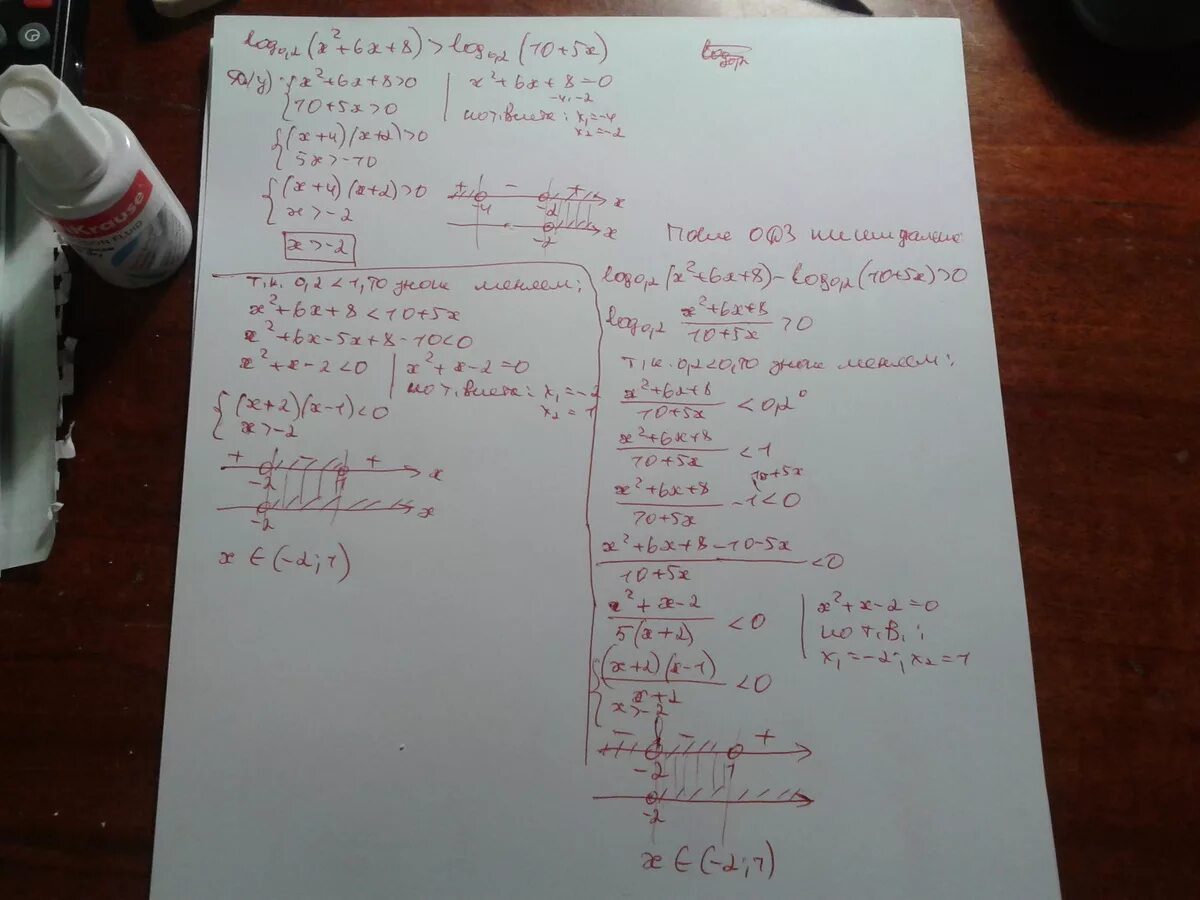 log₀,₂(x²+6x+8)>log₀,₂(10+5x)
{x²+6x+8>0
10+5x>0
x²+6x+8=0
-4; -2
x₁=-4
x₂=-2
{(x+4)(x+2)>0
5x>-10
{(x+4)(x+2)>0
x>-2
+ - + x
-4 -2
x
-2
x>-2
Т.к. 0,2<1, то знак меняем:
x²+6x+8<10+5x
x²+6x-5x+8-10<0
x²+x-2<0
x²+x-2=0
по т. Виета: x₁=-2
x₂=1
{(x+2)(x-1)<0
x>-2
+ - + x
-2 1
x
-2
x∈(-2;1)
log₀,₂
После ОДЗ
log₀,₂(x²+6x+8)-log₀,₂(10+5x)>0
log₀,₂ (x²+6x+8)/(10+5x) >0
Т.к. 0,2<0, то знак меняем:
(x²+6x+8)/(10+5x) <0,2⁰
(x²+6x+8)/(10+5x) <1
10+5x
(x²+6x+8)/(10+5x) -1<0
(x²+6x+8-10-5x)/(10+5x) <0
(x²+x-2)/(5(x+2)) <0
x²+x-2=0
по т. В.:
x₁=-2; x₂=1
{(x+2)(x-1)/(x+2) <0
x>-2
- - +
-2 1
-2
x∈(-2;1)
Krause